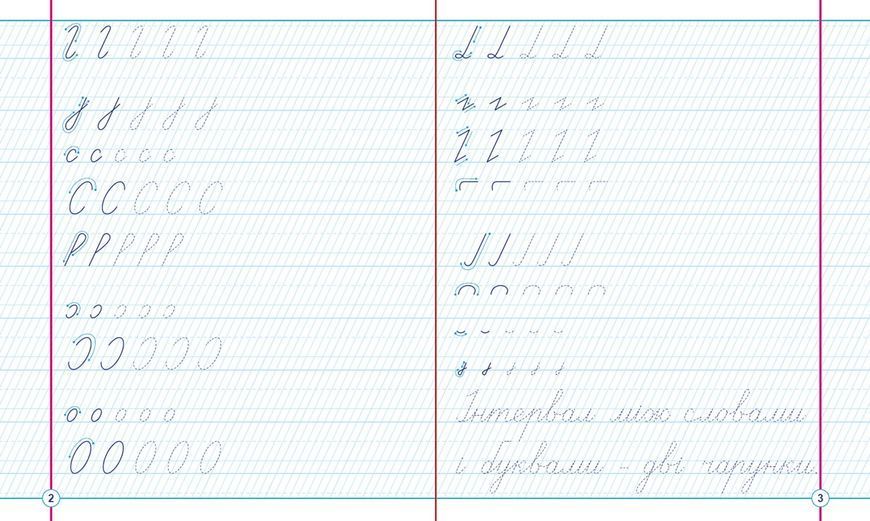 с с с с с
С С С С С
о о о о о
О О О О О
Інтервал між словами
і буквами - дві чарунки.
2
3